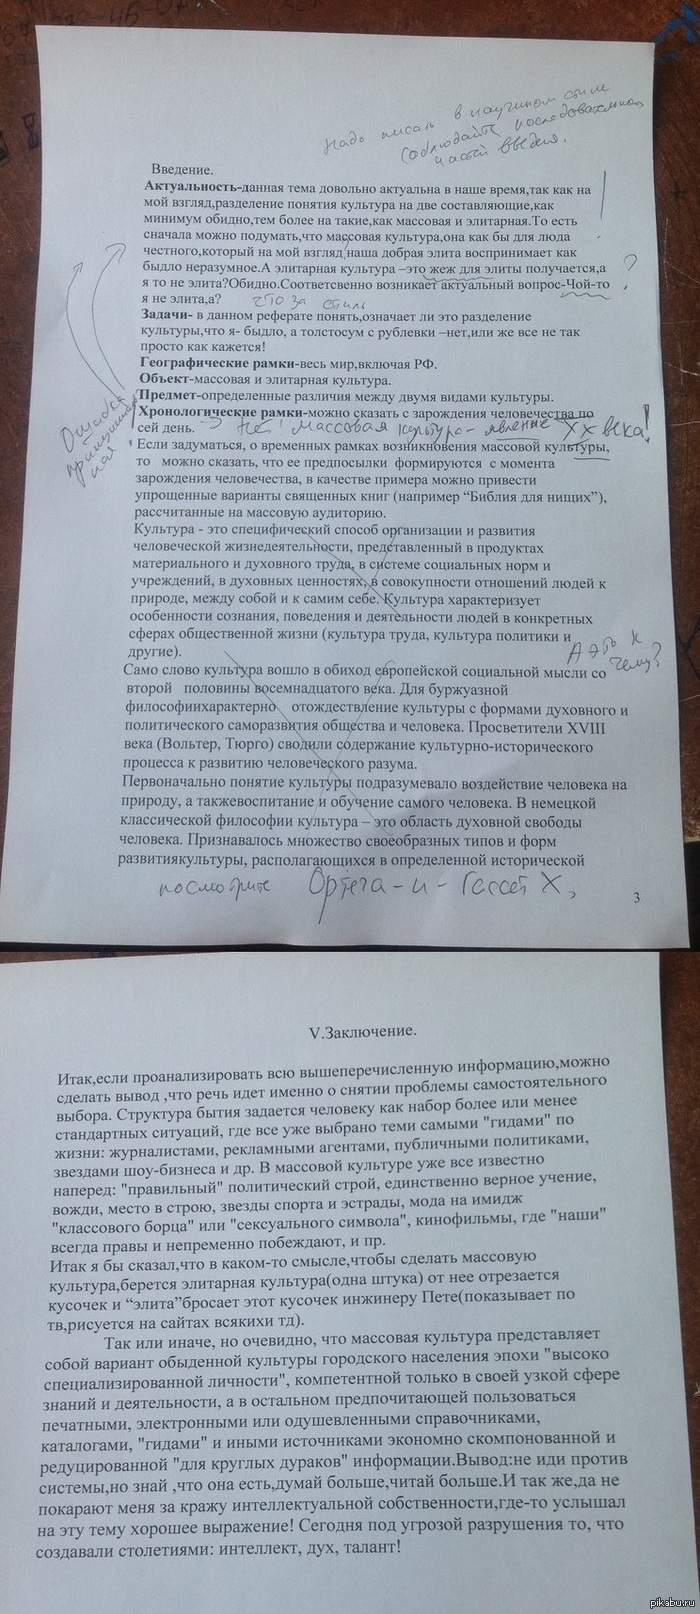 надо писать в научном стиле
соблюдайте последовательность
частей введен.
Введение.
Актуальность-данная тема довольно актуальна в наше время,так как на
мой взгляд,разделение понятия культура на две составляющие,как
минимум обидно,тем более на такие,как массовая и элитарная.То есть
сначала можно подумать,что массовая культура,она как бы для люда
честного,который на мой взгляд,наша добрая элита воспринимает как
быдло неразумное.А элитарная культура –это жеж для элиты получается,а
я то не элита?Обидно.Соответсвенно возникает актуальный вопрос-Чой-то
я не элита,а?
что за стиль
?
Задачи- в данном реферате понять,означает ли это разделение
культуры,что я- быдло, а толстосум с рублевки –нет,или же все не так
просто как кажется!
Географические рамки-весь мир,включая РФ.
Объект-массовая и элитарная культура.
Предмет-определенные различия между двумя видами культуры.
Хронологические рамки-можно сказать с зарождения человечества по
сей день.
→ Нет! Массовая культура - явление XX века!
Ошибка
принципиаль
ная!
Если задуматься, о временных рамках возникновения массовой культуры,
то можно сказать, что ее предпосылки формируются с момента
зарождения человечества, в качестве примера можно привести
упрощенные варианты священных книг (например “Библия для нищих”),
рассчитанные на массовую аудиторию.
Культура - это специфический способ организации и развития
человеческой жизнедеятельности, представленный в продуктах
материального и духовного труда, в системе социальных норм и
учреждений, в духовных ценностях, в совокупности отношений людей к
природе, между собой и к самим себе. Культура характеризует
особенности сознания, поведения и деятельности людей в конкретных
сферах общественной жизни (культура труда, культура политики и
другие).
А это к
чему?
Само слово культура вошло в обиход европейской социальной мысли со
второй половины восемнадцатого века. Для буржуазной
философиихарактерно отождествление культуры с формами духовного и
политического саморазвития общества и человека. Просветители XVIII
века (Вольтер, Тюрго) сводили содержание культурно-исторического
процесса к развитию человеческого разума.
Первоначально понятие культуры подразумевало воздействие человека на
природу, а такжевоспитание и обучение самого человека. В немецкой
классической философии культура – это область духовной свободы
человека. Признавалось множество своеобразных типов и форм
развитиякультуры, располагающихся в определенной исторической
посмотрите Ортега-и-Гассет Х,
3
V.Заключение.
Итак,если проанализировать всю вышеперечисленную информацию,можно
сделать вывод ,что речь идет именно о снятии проблемы самостоятельного
выбора. Структура бытия задается человеку как набор более или менее
стандартных ситуаций, где все уже выбрано теми самыми "гидами" по
жизни: журналистами, рекламными агентами, публичными политиками,
звездами шоу-бизнеса и др. В массовой культуре уже все известно
наперед: "правильный" политический строй, единственно верное учение,
вожди, место в строю, звезды спорта и эстрады, мода на имидж
"классового борца" или "сексуального символа", кинофильмы, где "наши"
всегда правы и непременно побеждают, и пр.
Итак я бы сказал,что в каком-то смысле,чтобы сделать массовую
культура,берется элитарная культура(одна штука) от нее отрезается
кусочек и “элита”бросает этот кусочек инженеру Пете(показывает по
тв,рисуется на сайтах всякихи тд).
Так или иначе, но очевидно, что массовая культура представляет
собой вариант обыденной культуры городского населения эпохи "высоко
специализированной личности", компетентной только в своей узкой сфере
знаний и деятельности, а в остальном предпочитающей пользоваться
печатными, электронными или одушевленными справочниками,
каталогами, "гидами" и иными источниками экономно скомпонованной и
редуцированной "для круглых дураков" информации.Вывод:не иди против
системы,но знай ,что она есть,думай больше,читай больше.И так же,да не
покарают меня за кражу интеллектуальной собственности,где-то услышал
на эту тему хорошее выражение! Сегодня под угрозой разрушения то, что
создавали столетиями: интеллект, дух, талант!
pikabu.ru